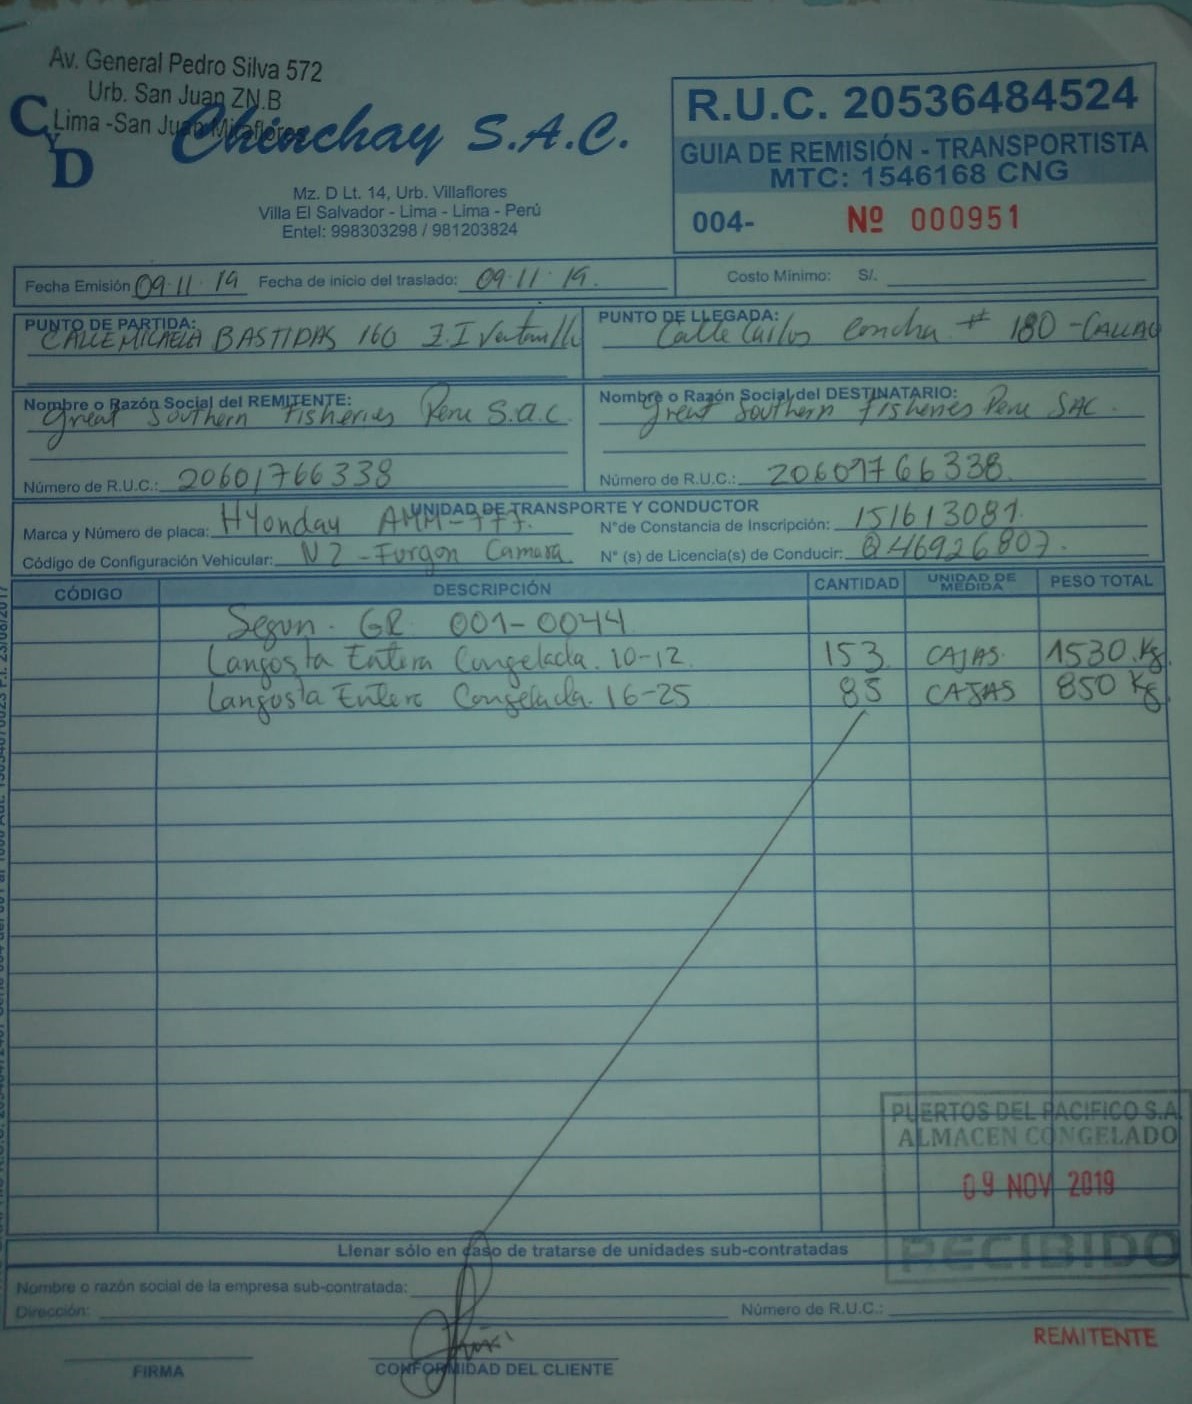 Av. General Pedro Silva 572
Urb. San Juan ZN.B
Lima -San Juan Miraflores
CyD Chinchay S.A.C.
Mz. D Lt. 14, Urb. Villaflores
Villa El Salvador - Lima - Lima - Perú
Entel: 998303298 / 981203824
R.U.C. 20536484524
GUIA DE REMISIÓN - TRANSPORTISTA
MTC: 1546168 CNG
004- Nº 000951
Fecha Emisión 09.11.19 Fecha de inicio del traslado: 09.11.19. Costo Mínimo: S/.
PUNTO DE PARTIDA:
CALLE MICAELA BASTIDAS 160 Z.I
PUNTO DE LLEGADA:
Calle Carlos Concha # 180 - CALLAO
Nombre o Razón Social del REMITENTE:
Great Southern Fisheries Peru S.a.c.
Número de R.U.C.: 20601766338
Nombre o Razón Social del DESTINATARIO:
Great Southern Fisheries Peru SAC.
Número de R.U.C.: 20601766338
UNIDAD DE TRANSPORTE Y CONDUCTOR
Marca y Número de placa: Hyonday AMM-777. N°de Constancia de Inscripción: 151613081.
Código de Configuración Vehicular: N2 - Furgon Camara N° (s) de Licencia(s) de Conducir: Q46926807.
CÓDIGO DESCRIPCIÓN CANTIDAD UNIDAD DE MEDIDA PESO TOTAL
Segun. GR 001-0044
Langosta Entera Congelada. 10-12. 153 CAJAS. 1530 Kg.
Langosta Entera Congelada. 16-25 85 CAJAS 850 Kg
PUERTOS DEL PACIFICO S.A
ALMACEN CONGELADO
09 NOV 2019
RECIBIDO
Llenar sólo en caso de tratarse de unidades sub-contratadas
Nombre o razón social de la empresa sub-contratada:
Dirección: Número de R.U.C.:
REMITENTE
FIRMA
CONFORMIDAD DEL CLIENTE